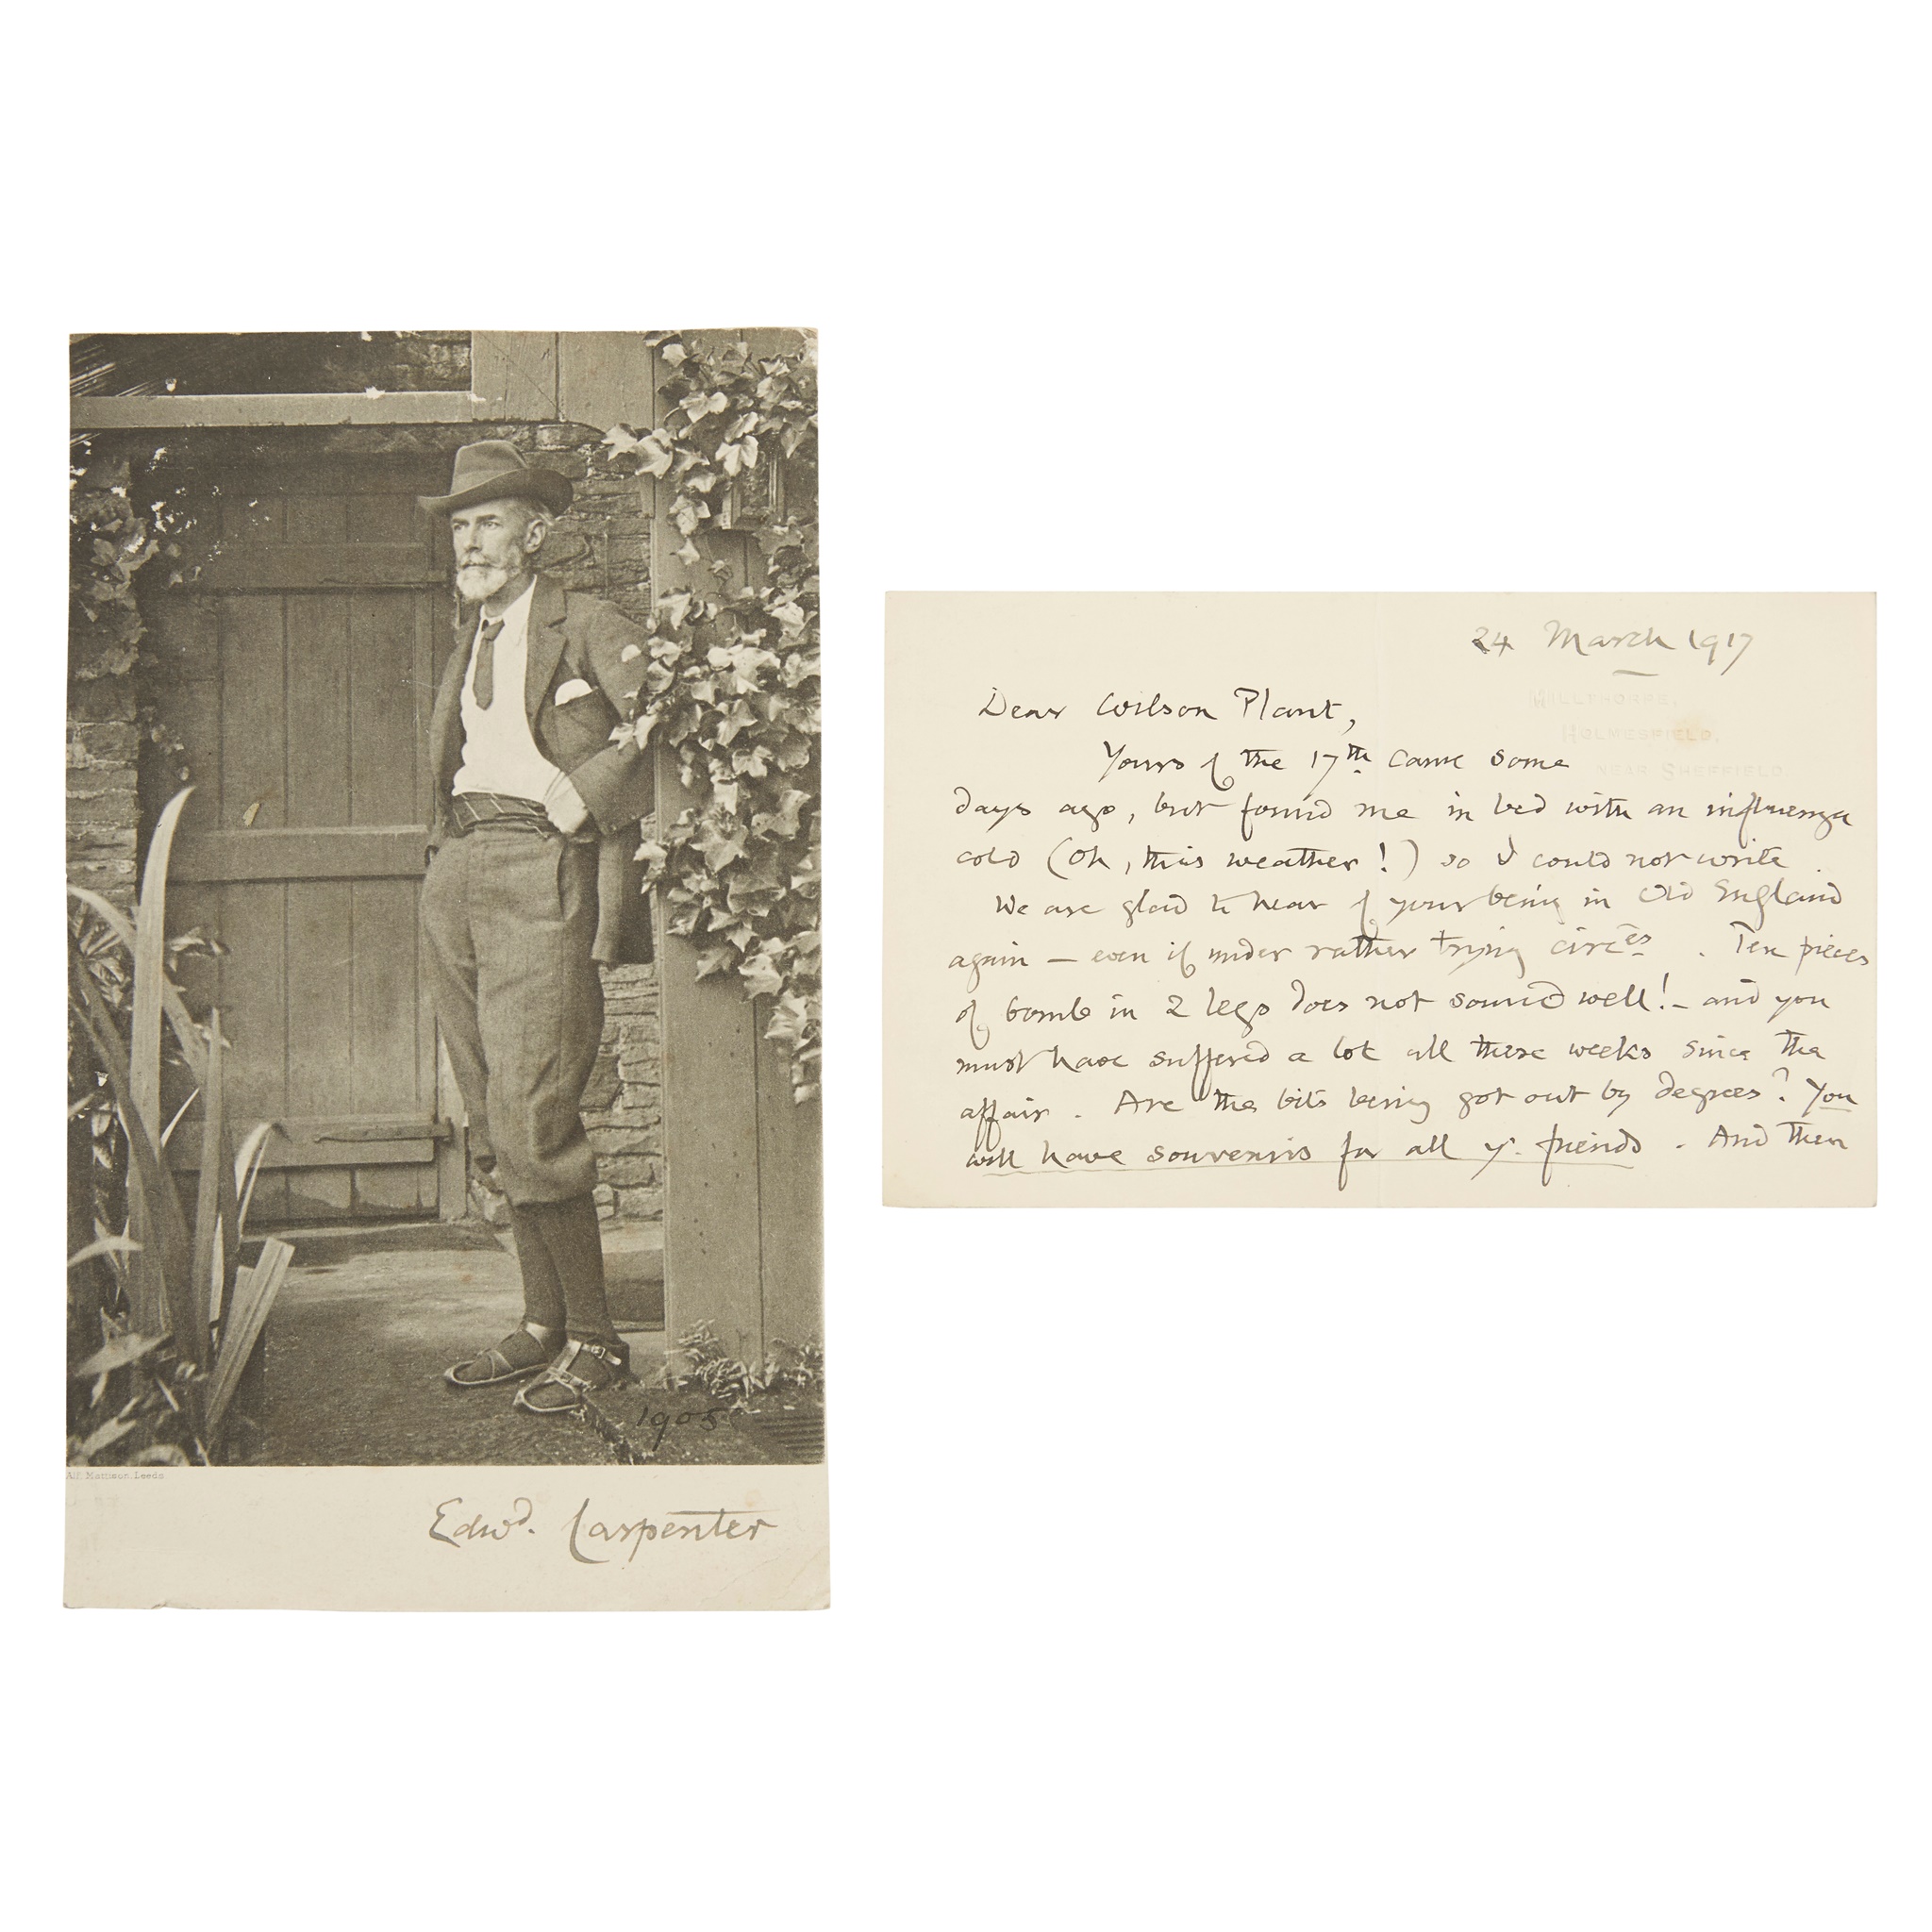 1905
Alf. Mattison. Leeds
Edwd. Carpenter
24 March 1917
MILLTHORPE,
HOLMESFIELD.
NEAR SHEFFIELD.
Dear Wilson Plant,
Yours of the 17th came some
days ago, but found me in bed with an influenza
cold (Oh, this weather!) so I could not write
We are glad to hear of your being in Old England
again — even if under rather trying circes. Ten pieces
of bomb in 2 legs does not sound well! — and you
must have suffered a lot all these weeks since the
affair. Are the bits being got out by degrees? You
will have souvenirs for all yr. friends. And then